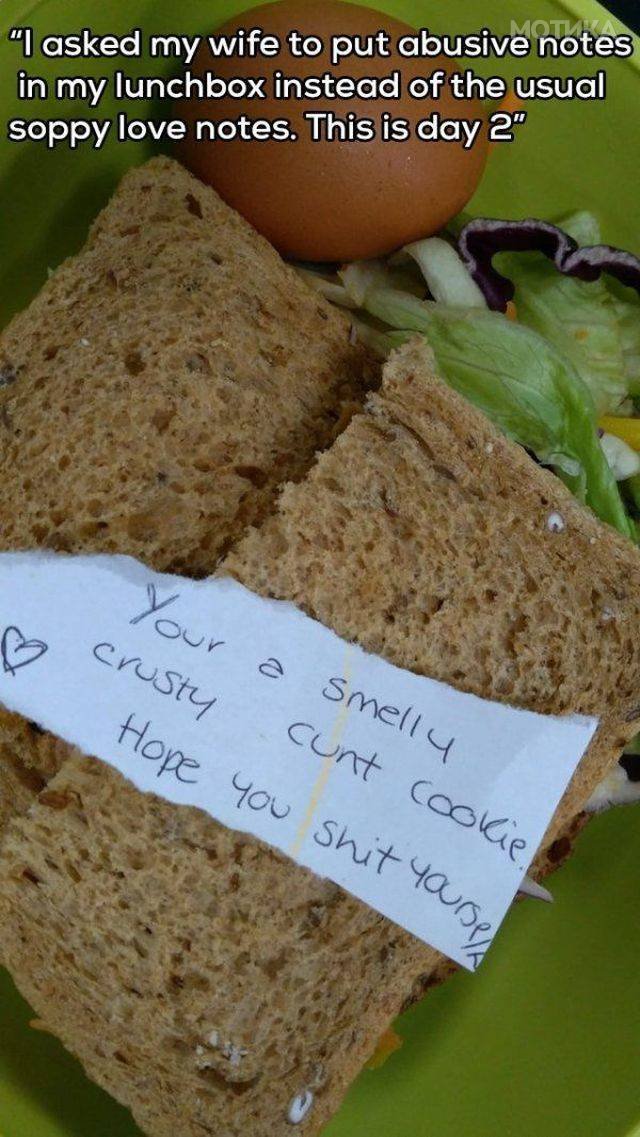 МОТИКА
“I asked my wife to put abusive notes
in my lunchbox instead of the usual
soppy love notes. This is day 2”
Your a smelly
crusty cunt cookie.
Hope you shit yourself